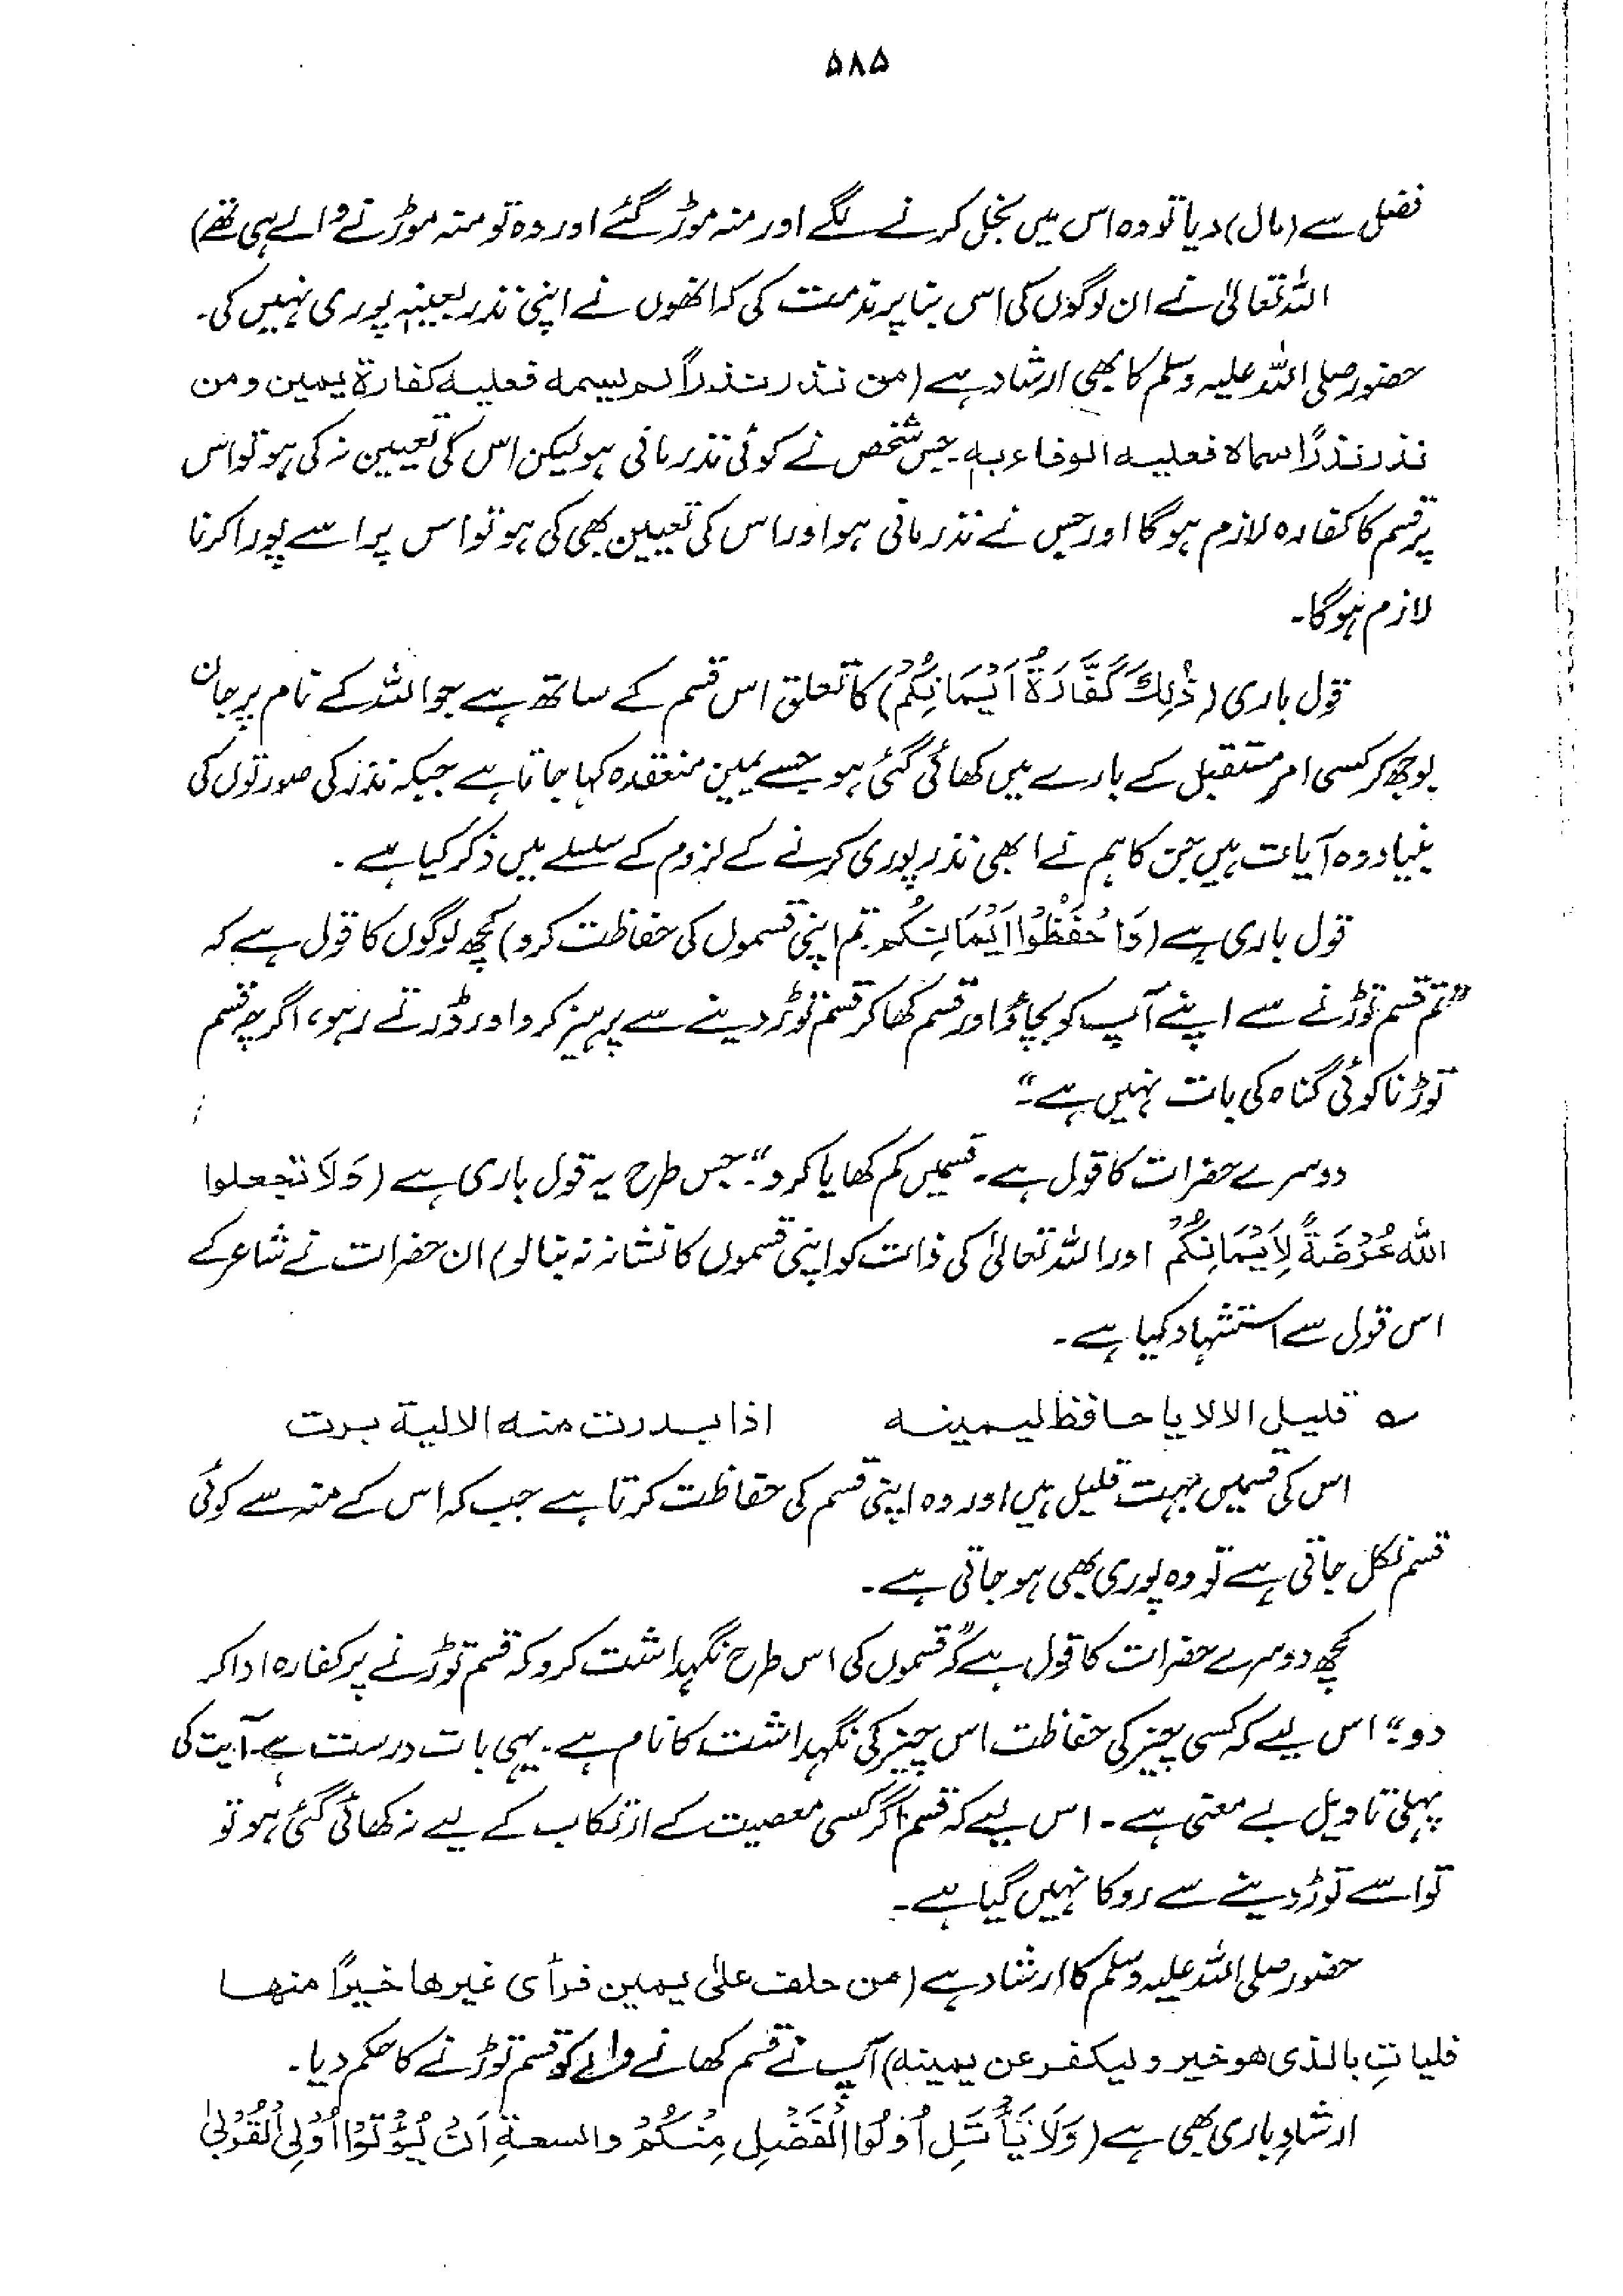 ۵۸۵
فضل سے (مال) دیا تو وہ اس میں بخل کرنے لگے اور منہ موڑ گئے اور وہ تو منہ موڑنے والے ہی تھے)
اللہ تعالیٰ نے ان لوگوں کی اس بنا پر مذمت کی کہ انھوں نے اپنی نذر بعینہٖ پوری نہیں کی۔
حضور صلی اللہ علیہ وسلم کا بھی ارشاد ہے (من نذر نذراً لم یسمہ فعلیہ کفارة یمین و من
نذر نذرًا سماہ فعلیہ الوفاء بہ۔ جس شخص نے کوئی نذر مانی ہو لیکن اس کی تعیین نہ کی ہو تو اس
پر قسم کا کفارہ لازم ہوگا اور جس نے نذر مانی ہو اور اس کی تعیین بھی کی ہو تو اس پر اسے پورا کرنا
لازم ہوگا۔
قول باری (ذٰلِكَ كَفَّارَةُ اَيْمَانِكُمْ) کا تعلق اس قسم کے ساتھ ہے جو اللہ کے نام پر جان
بوجھ کر کسی امرِ مستقبل کے بارے میں کھائی گئی ہو جسے یمین منعقدہ کہا جاتا ہے جبکہ نذر کی صورتوں کی
بنیاد وہ آیات ہیں جن کا ہم نے ابھی نذر پوری کرنے کے لزوم کے سلسلے میں ذکر کیا ہے۔
قول باری ہے (وَاحْفَظُوْا اَيْمَانَكُمْ۔ تم اپنی قسموں کی حفاظت کرو) کچھ لوگوں کا قول ہے کہ
”تم قسم توڑنے سے اپنے آپ کو بچاؤ اور قسم کھا کر قسم توڑ دینے سے پرہیز کرو اور ڈرتے رہو، اگرچہ قسم
توڑنا کوئی گناہ کی بات نہیں ہے“۔
دوسرے حضرات کا قول ہے۔ قسمیں کم کھایا کرو“۔ جس طرح یہ قول باری ہے (وَلَا تجعلوا
اللّٰهَ عُرْضَةً لِاَيْمَانِكُمْ اور اللہ تعالیٰ کی ذات کو اپنی قسموں کا نشانہ نہ بنالو) ان حضرات نے شاعر کے
اس قول سے استشہاد کیا ہے۔
؎ قلیل الالایا حافظ لیمینہ اذا بدرت منہ الالیة برت
اس کی قسمیں بہت قلیل ہیں اور وہ اپنی قسم کی حفاظت کرتا ہے جب کہ اس کے منہ سے کوئی
قسم نکل جاتی ہے تو وہ پوری بھی ہو جاتی ہے۔
کچھ دوسرے حضرات کا قول ہے کہ ”قسموں کی اس طرح نگہداشت کرو کہ قسم توڑنے پر کفارہ ادا کر
دو“۔ اس لیے کہ کسی چیز کی حفاظت اس چیز کی نگہداشت کا نام ہے۔ یہی بات درست ہے۔ آیت کی
پہلی تاویل بے معنی ہے۔ اس لیے کہ قسم اگر کسی معصیت کے ارتکاب کے لیے نہ کھائی گئی ہو تو
تو اسے توڑ دینے سے روکا نہیں گیا ہے۔
حضور صلی اللہ علیہ وسلم کا ارشاد ہے (من حلف علیٰ یمین فرأی غیرها خیرًا منها
فلیاتِ بالذی هو خیر و لیکفر عن یمینہ) آپ نے قسم کھانے والے کو قسم توڑنے کا حکم دیا۔
ارشادِ باری بھی ہے (وَلَا يَأْتَلِ اُولُوا الْفَضْلِ مِنْكُمْ والسعةِ اَنْ يُؤْتُوْا اُولِى الْقُرْبٰى